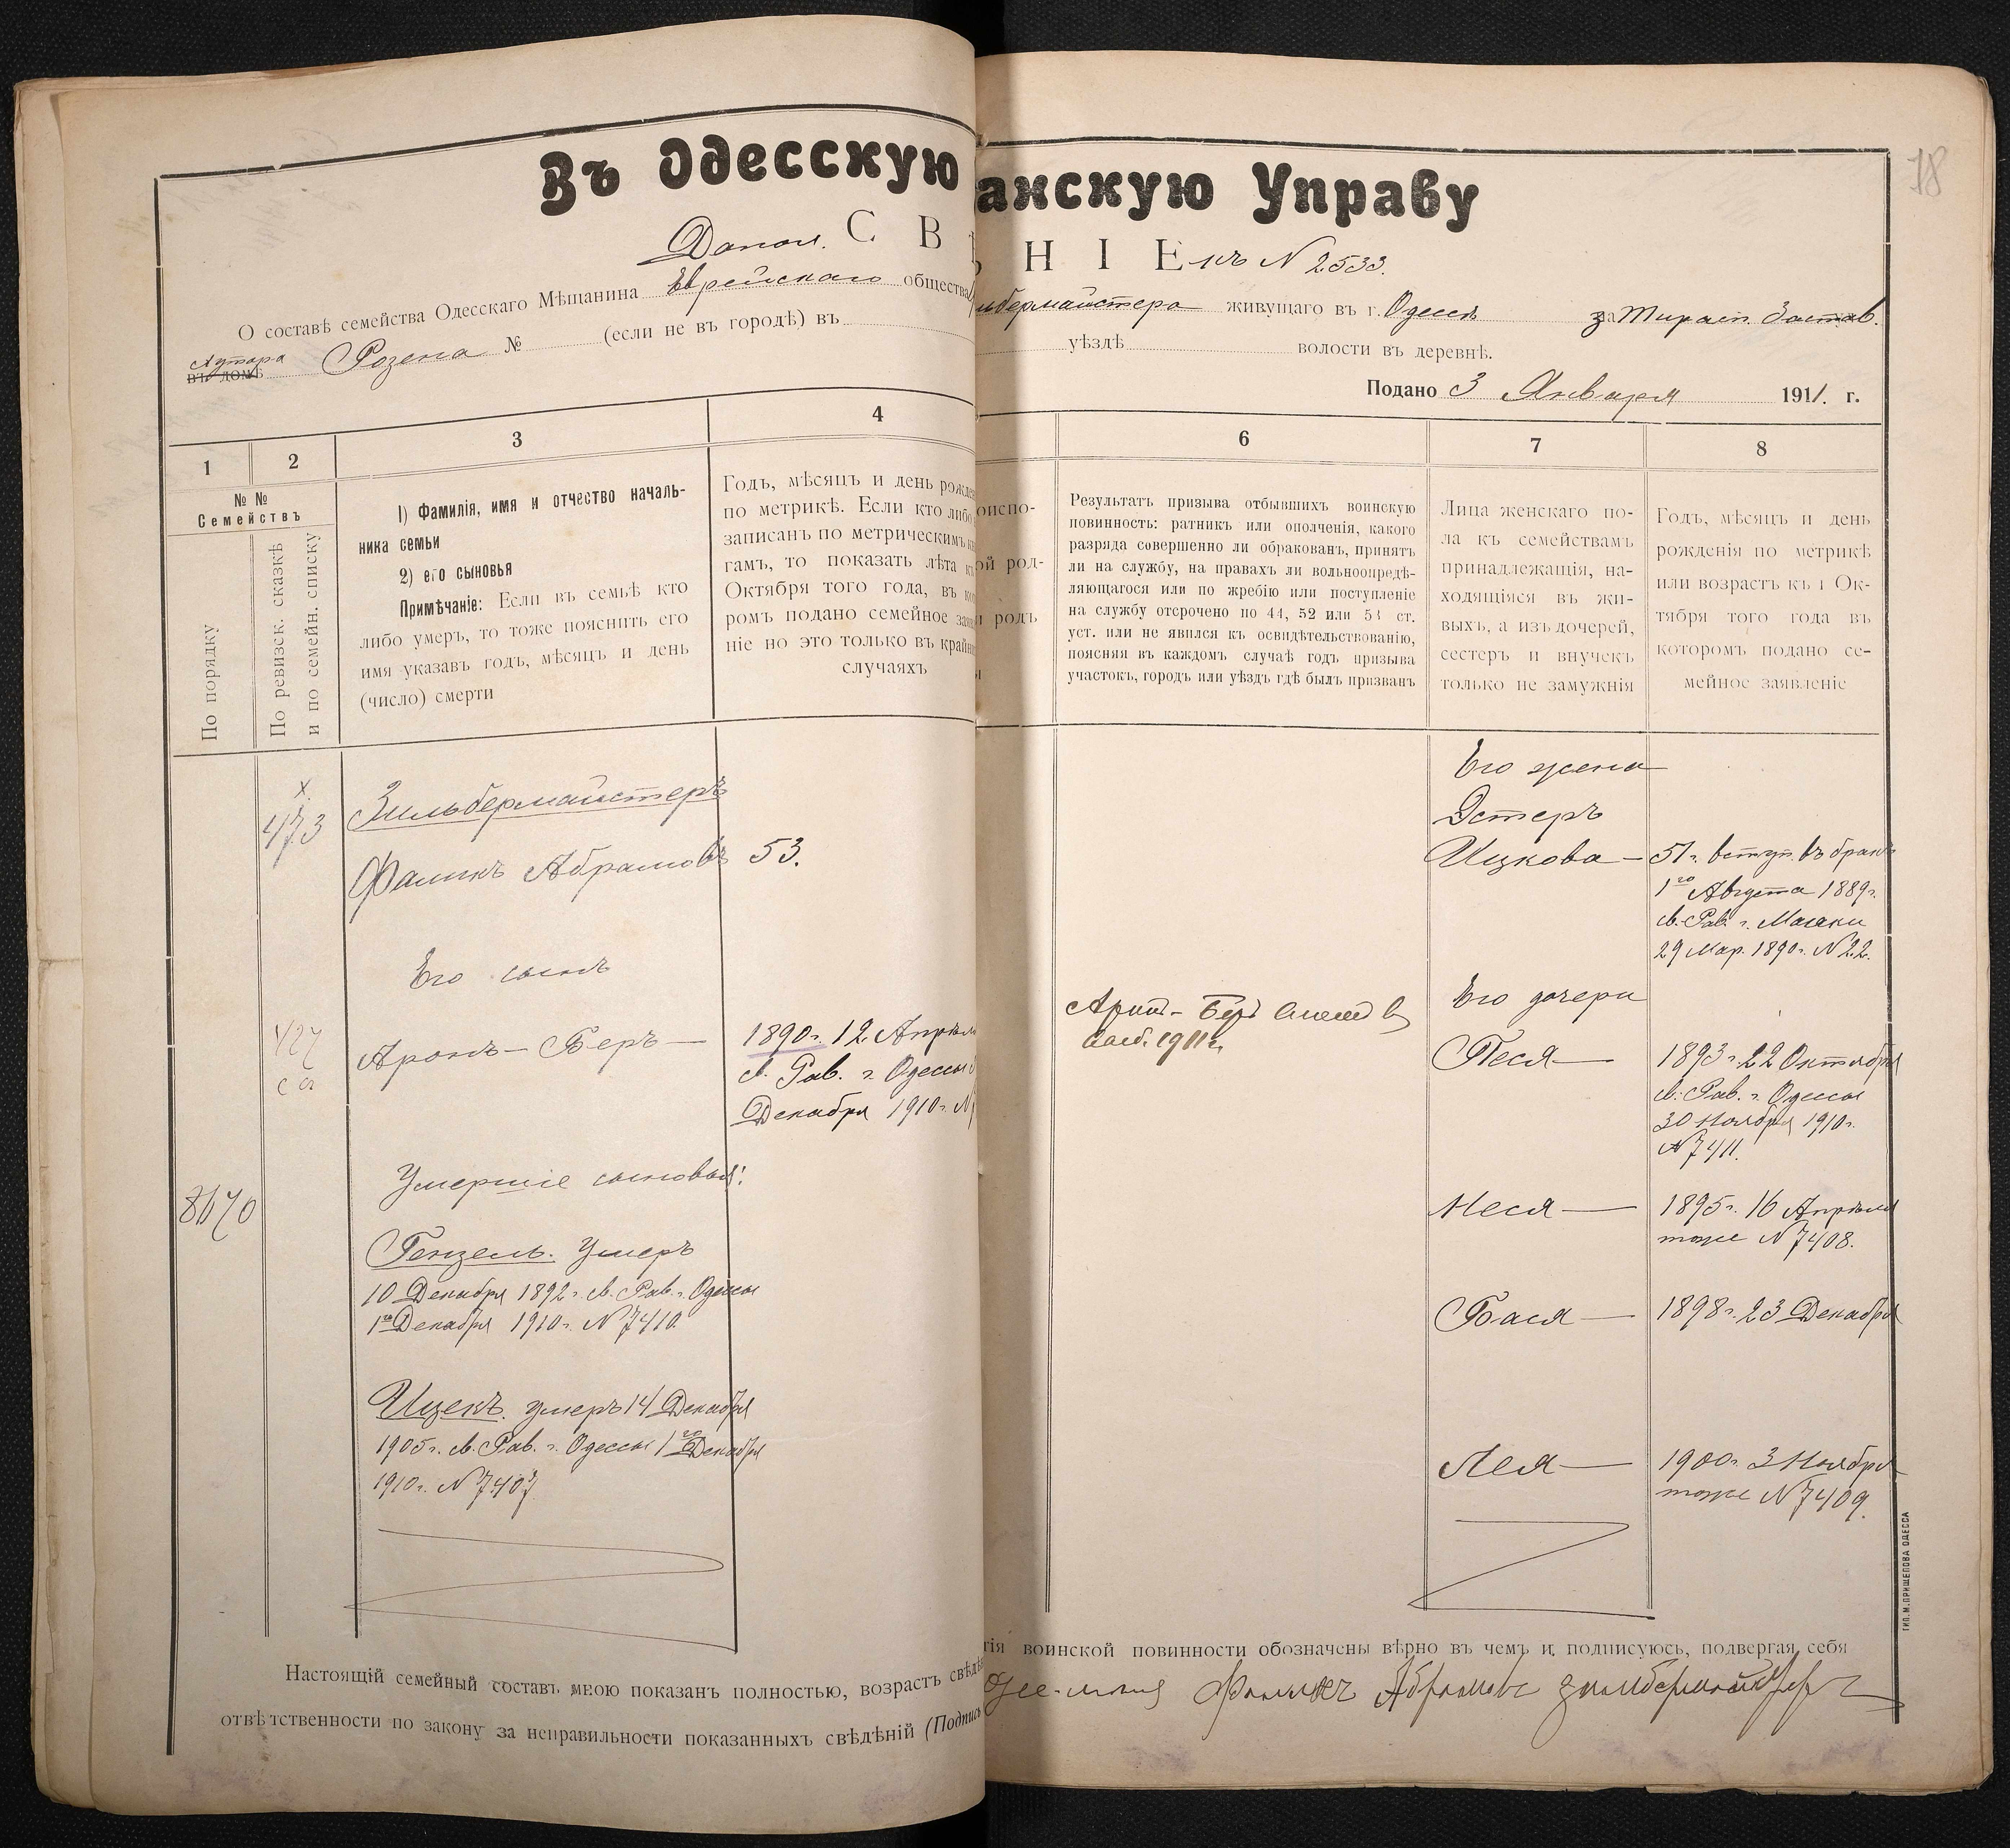 18
Въ Одесскую
анскую Управу
Допол. С В
Н І Е къ N 2533.
О составѣ семейства Одесскаго Мѣщанина Еврейскаго общества
льбермайстера живущаго въ г. Одессѣ за Тирасп. Застав.
хутора
въ домѣ Розена № (если не въ городѣ) въ
уѣздѣ волости въ деревнѣ.
Подано 3 Января 1911. г.
1
2
3
4
6
7
8
№ №
Семействъ
По порядку
По ревизск. сказкѣ
и по семейн. списку
1) Фамилія, имя и отчество началь-
ника семьи
2) его сыновья
Примѣчаніе: Если въ семьѣ кто
либо умеръ, то тоже пояснить его
имя указавъ годъ, мѣсяцъ и день
(число) смерти
Годъ, мѣсяцъ и день рожде
по метрикѣ. Если кто либо
записанъ по метрическимъ
гамъ, то показать лѣта к
Октября того года, въ ко
ромъ подано семейное заяв
ніе но это только въ крайн
случаяхъ
оиспо-
ой род-
и родъ
Результатъ призыва отбывшихъ воинскую
повинность: ратникъ или ополченія, какого
разряда совершенно ли обракованъ, принятъ
ли на службу, на правахъ ли вольноопредѣ-
ляющагося или по жребію или поступленіе
на службу отсрочено по 44, 52 или 54 ст.
уст. или не явился къ освидѣтельствованію,
поясняя въ каждомъ случаѣ годъ призыва
участокъ, городъ или уѣздъ гдѣ былъ призванъ
Лица женскаго по-
ла къ семействамъ
принадлежащія, на-
ходящіяся въ жи-
выхъ, а изъ дочерей,
сестеръ и внучекъ
только не замужнія
Годъ, мѣсяцъ и день
рожденія по метрикѣ
или возрастъ къ 1 Ок-
тября того года въ
которомъ подано се-
мейное заявленіе
х
473
Зильбермайстеръ
Фаликъ Абрамовъ 53.
Его сынъ
427
Аронъ-Беръ — 1890 г. 12 Апрѣля
с. Рав. г. Одессы
Декабря 1910 г. N
Умершіе сыновья:
8670
Гензель. Умеръ
10 Декабря 1892 г. с. Рав. г. Одессы
1го Декабря 1910 г. N 7410.
Ицекъ. умеръ 14 Декабря
1905 г. с. Рав. г. Одессы 1го Декабря
1910 г. N 7407
Аронъ-Беръ
1911 г.
Его жена
Эстеръ
Ицкова — 51 г. вступ. въ бракъ
1го Августа 1889 г.
с. Рав. г. Маяки
29 Мар. 1890 г. N 22.
Его дочери
Песя — 1893 г. 22 Октября
с. Рав. г. Одессы
30 Ноября 1910 г.
N 7411.
Неся — 1895 г. 16 Апрѣля
тоже N 7408.
Бася — 1898 г. 23 Декабря
Лея — 1900 г. 3 Ноября
тоже N 7409.
Настоящій семейный составъ мною показанъ полностью, возрастъ свѣдѣ
тія воинской повинности обозначены вѣрно въ чемъ и подписуюсь, подвергая себя
отвѣтственности по закону за неправильности показанныхъ свѣдѣній (Подпись
Фаликъ Абрамовъ Зильбермайстеръ
ТИП. М. ПРИЩЕПОВА ОДЕССА